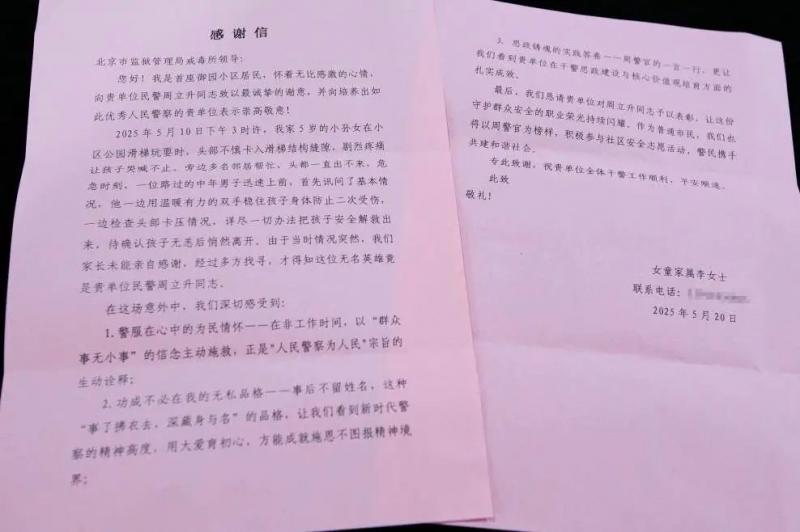 感谢信
北京市监狱管理局戒毒所领导:
您好!我是首座御园小区居民,怀着无比感激的心情,
向贵单位民警周立升同志致以最诚挚的谢意,并向培养出如
此优秀人民警察的贵单位表示崇高敬意!
2025年5月10日下午3时许,我家5岁的小孙女在小
区公园滑梯玩耍时,头部不慎卡入滑梯结构缝隙,剧烈疼痛
让孩子哭喊不止。旁边多名邻居帮忙,头都一直出不来,危
急时刻,一位路过的中年男子迅速上前,首先讯问了基本情
况,他一边用温暖有力的双手稳住孩子身体防止二次受伤,
一边检查头部卡压情况,详尽一切办法把孩子安全解救出
来,待确认孩子无恙后悄然离开。由于当时情况突然,我们
家长未能亲自感谢,经过多方找寻,才得知这位无名英雄竟
是贵单位民警周立升同志。
在这场意外中,我们深切感受到:
1.警服在心中的为民情怀——在非工作时间,以“群众
事无小事”的信念主动施救,正是“人民警察为人民”宗旨的
生动诠释;
2.功成不必在我的无私品格——事后不留姓名,这种
“事了拂衣去,深藏身与名”的品格,让我们看到新时代警
察的精神高度,用大爱育初心,方能成就施恩不图报精神境
界;
3.思政铸魂的实践答卷——周警官的一言一行,更让
我们看到贵单位在干警思政建设与核心价值观培育方面的
扎实成效。
最后,我们恳请贵单位对周立升同志予以表彰,让这份
守护群众安全的职业荣光持续闪耀。作为普通市民,我们也
得以周警官为榜样,积极参与社区安全志愿活动,警民携手
共建和谐社会。
专此致谢,祝贵单位全体干警工作顺利,平安顺遂。
此致
敬礼!
女童家属李女士
联系电话:
2025年5月20日